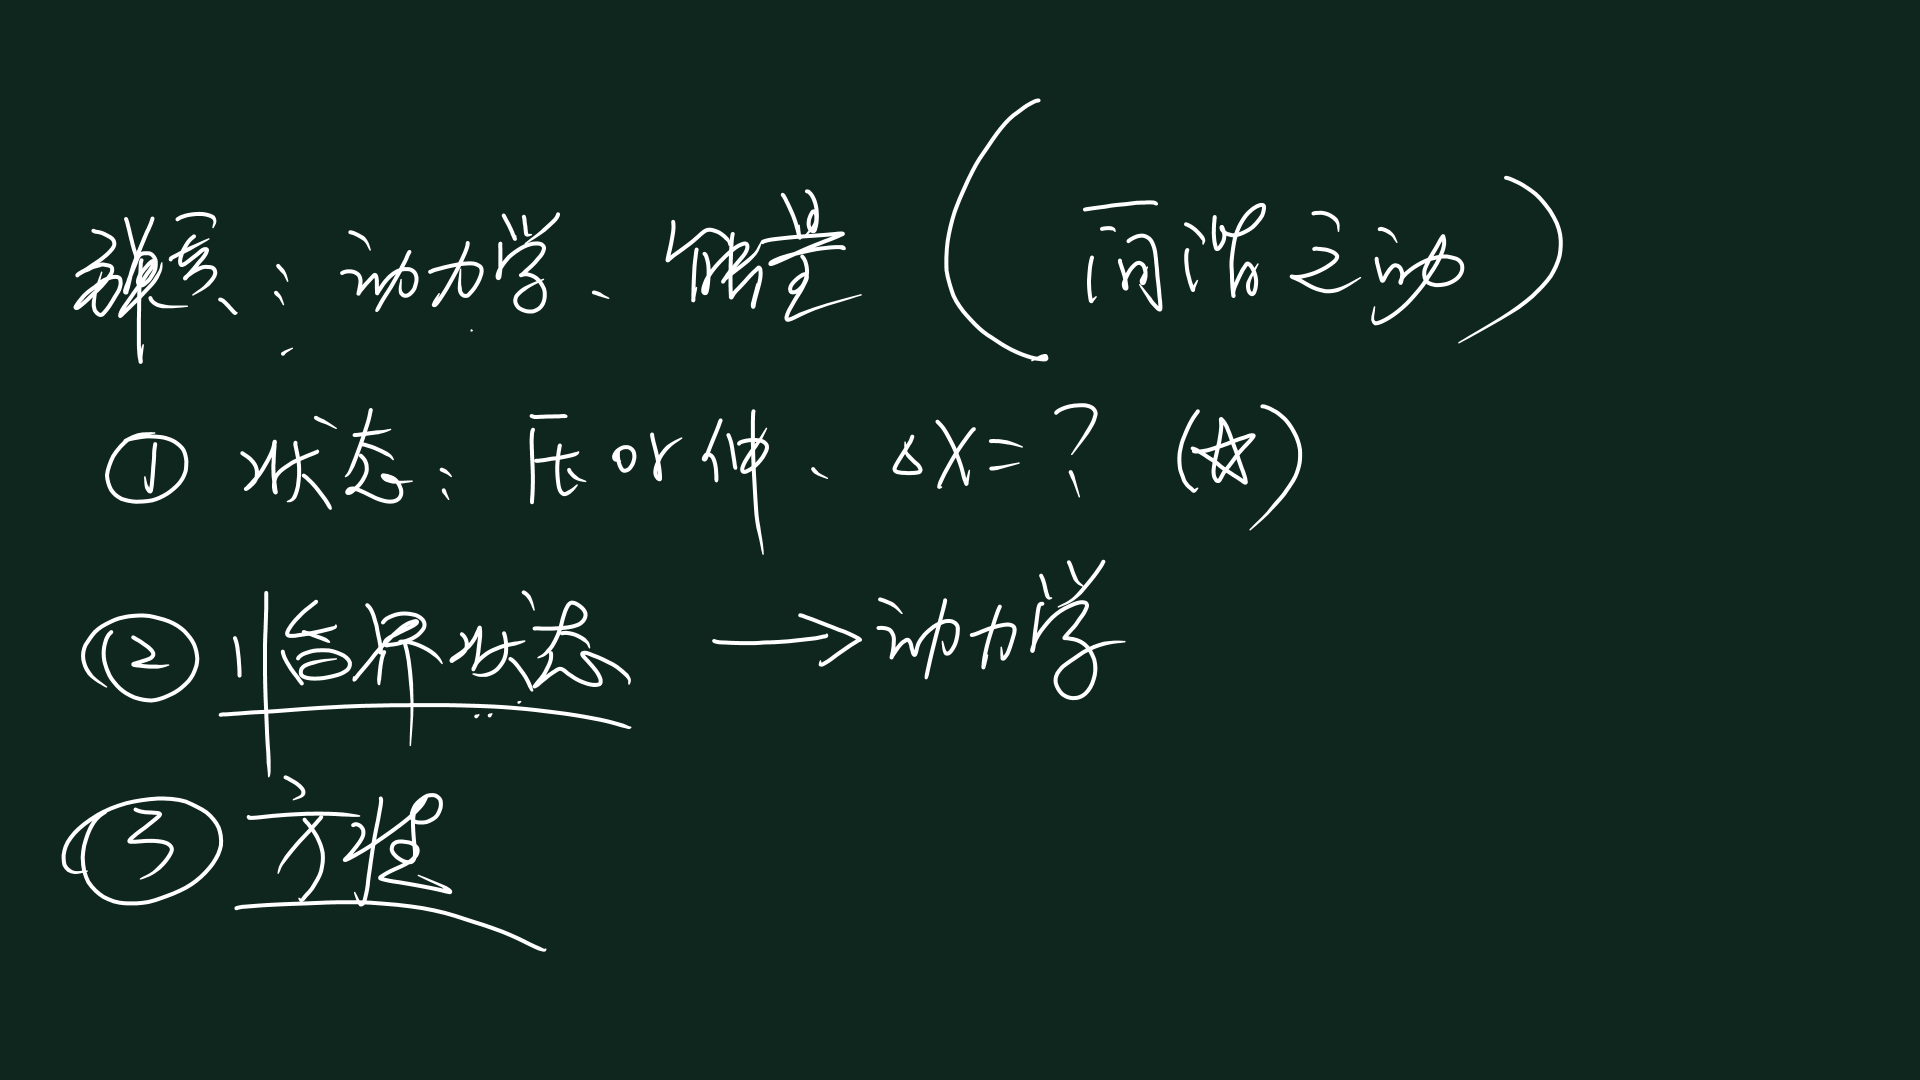 弹簧:动力学、能量(简谐运动)
① 状态:压or伸、△X=?(☆)
② 临界状态 →动力学
③ 方程